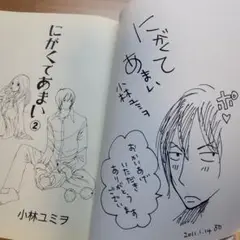 にがくてあまい
②
小林ユミヲ
にがくて
あまい
小林ユミヲ
ポ
おかいあげ
いただき
ありがとう
ございます
2011.1.14